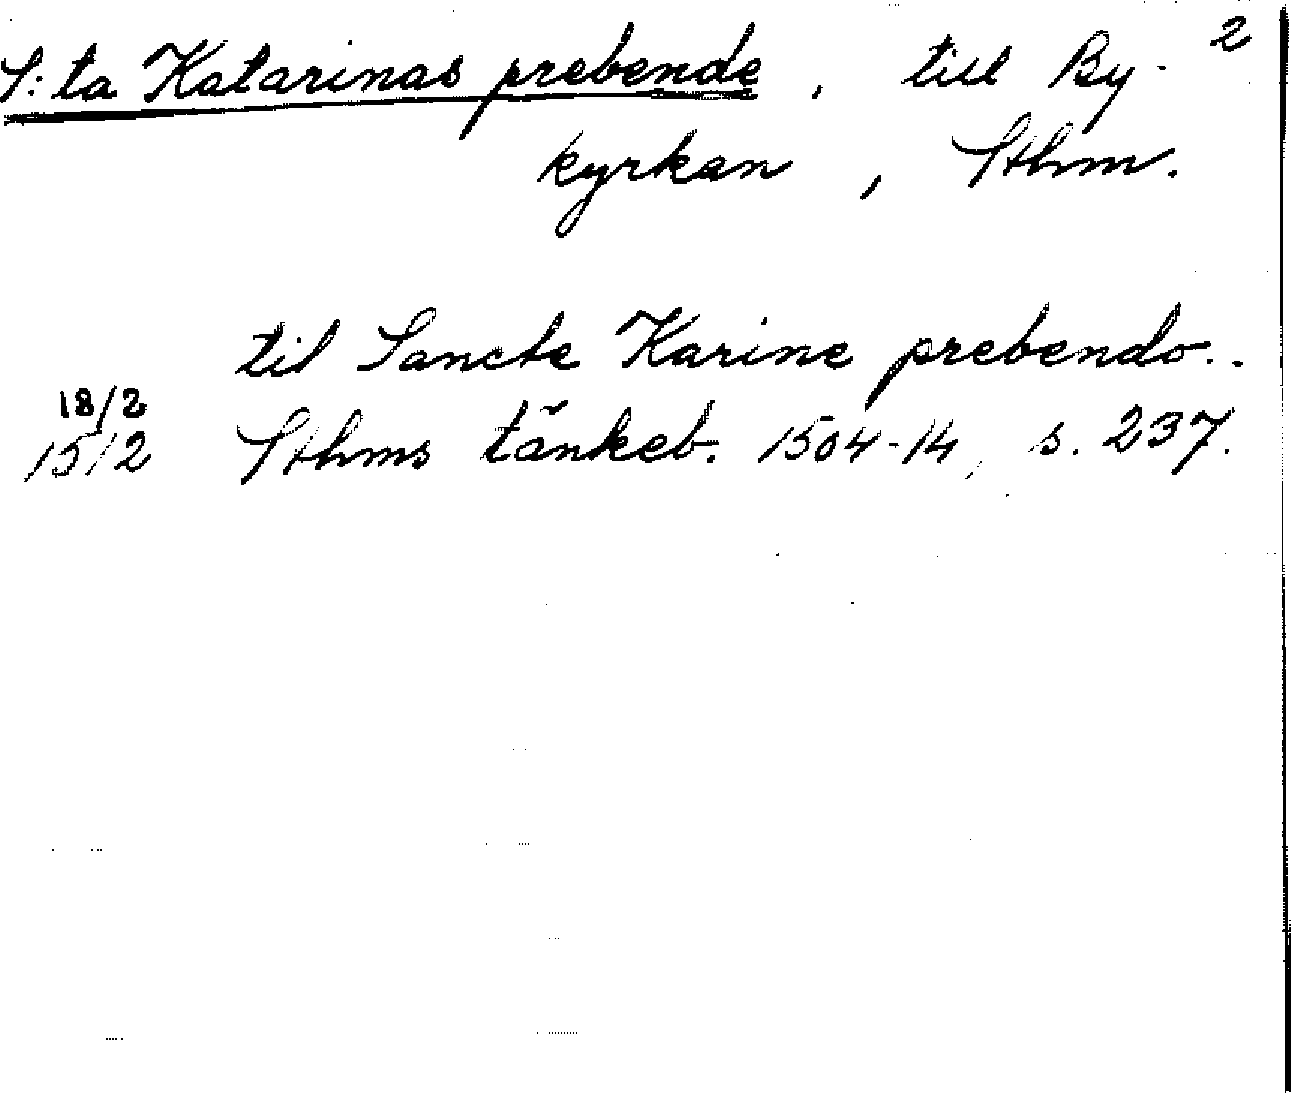 2
S:ta Katarinas prebende, till By-
kyrkan, Sthm.
til Sancte Karine prebendo..
18/2
15/2 Sthms tänkeb. 1504-14, s. 237.